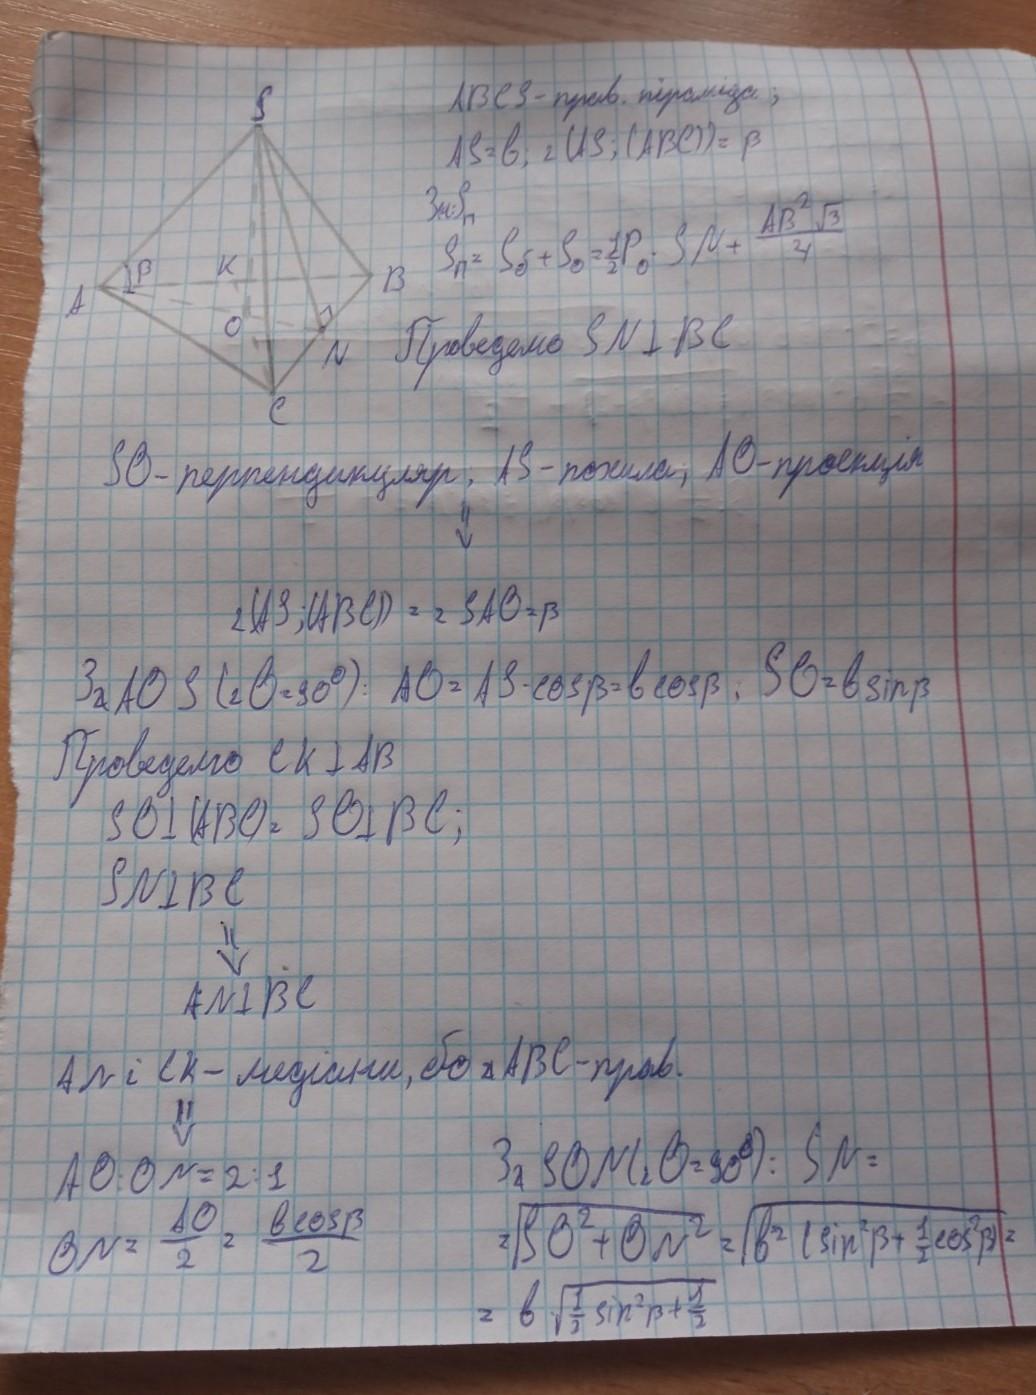 ABCS - прав. піраміда;
AS=b; ∠(AS;(ABC))=β
Зн: Sп
Sп = Sб + Sо = 1/2 Pо · SN + AB²√3/4
S
A
β
K
B
O
N
C
Проведемо SN⊥BC
SO - перпендикуляр; AS - похила; AO - проекція
⇓
∠(AS;(ABC)) = ∠SAO=β
З △AOS (∠O=90°): AO = AS·cosβ = b cosβ; SO = b sinβ
Проведемо CK⊥AB
SO⊥(ABC) = SO⊥BC;
SN⊥BC
⇓
AN⊥BC
AN і CK - медіани, бо △ABC - прав.
⇓
AO:ON = 2:1
ON = AO/2 = b cosβ/2
З △SON (∠O=90°): SN =
= √(SO² + ON²) = √(b² (sin²β + 1/2 cos²β)) =
= b √(1/2 sin²β + 1/2)